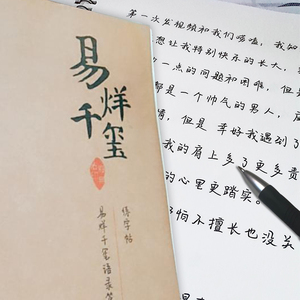 易
烊
千
玺
练字帖
易烊千玺语录
第一次发视频和我们唠嗑，我
想让我特别快乐的长大，
一点的问题和困难，但
是一个帅气的男人，
情，但是 幸好我遇到了
我的肩上多了更多责
的心里更踏实。
怕不擅长也没关